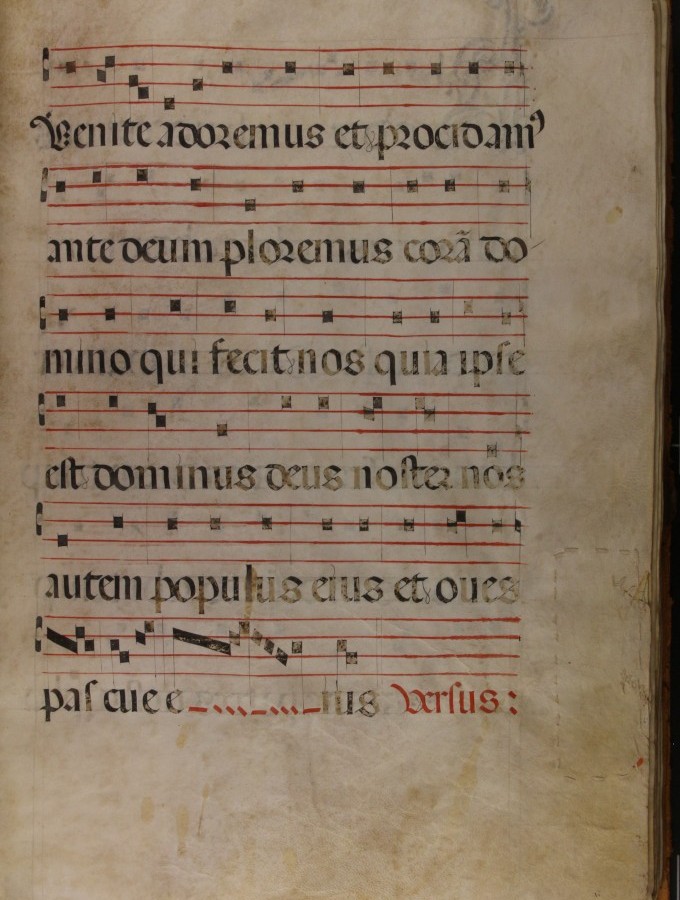 Venite adoremus et procidamꝰ
ante deum ploremus corã do
mino qui fecit nos quia ipse
est dominus deus noster nos
autem populus eius et oues
pascue e nus Versus: